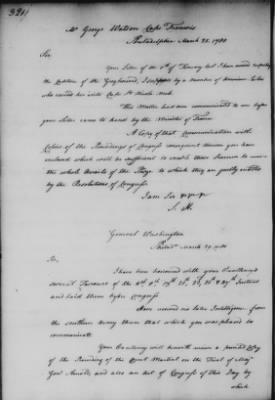 321
Mr George Watson Cape Francois
Philadelphia March 28. 1780
Sir
Your Letter of the 5th of January last I have received respecting
the Capture of the Greyhound,
who carried her into Cape St Nicola Mole
This Matter had been communicated to me before
your Letter came to hand by the Minister of France
A Copy of that Communication with
Copies of the Proceedings of Congress consequent thereon you have
enclosed which will be sufficient to enable their Owners to receive
the whole Amount of the Prize to which they are justly entitled
by the Resolutions of Congress
I am Sir &c &c &c
S. H.
General Washington
Philada March 29. 1780
Sir,
I have been honored with your Excellency's
several Favours of the
and laid them before Congress
Have received no later Intelligence from
the southern Army than that which you was pleased to
communicate
Your Excellency will herewith receive a printed Copy
of the Proceeding of the Court Martial on the Trial of Majr
Genl Arnold, and also an Act of Congress of this Day by
which